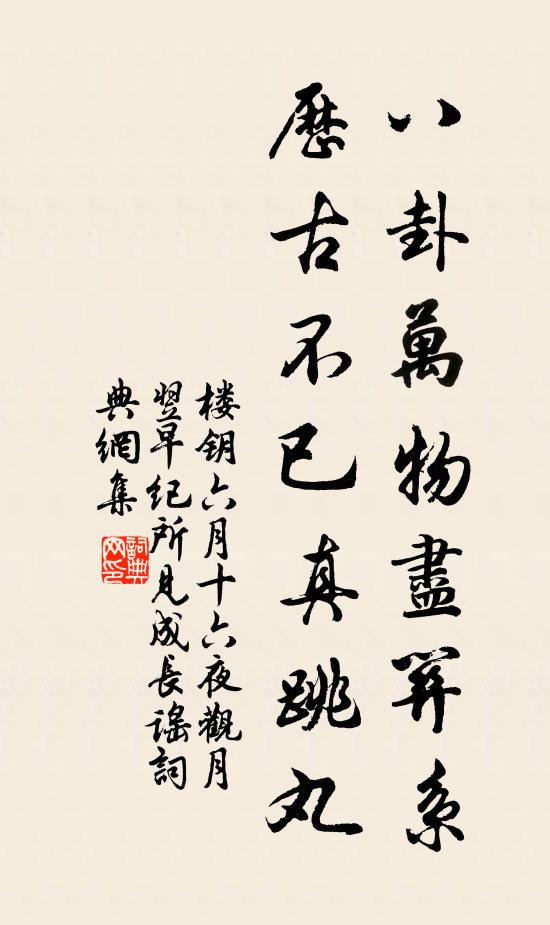 八卦萬物盡筭系
歷古不已真跳丸
楼钥六月十六夜觀月
翌早纪所見成長谣詞
典網集
詞典
网印